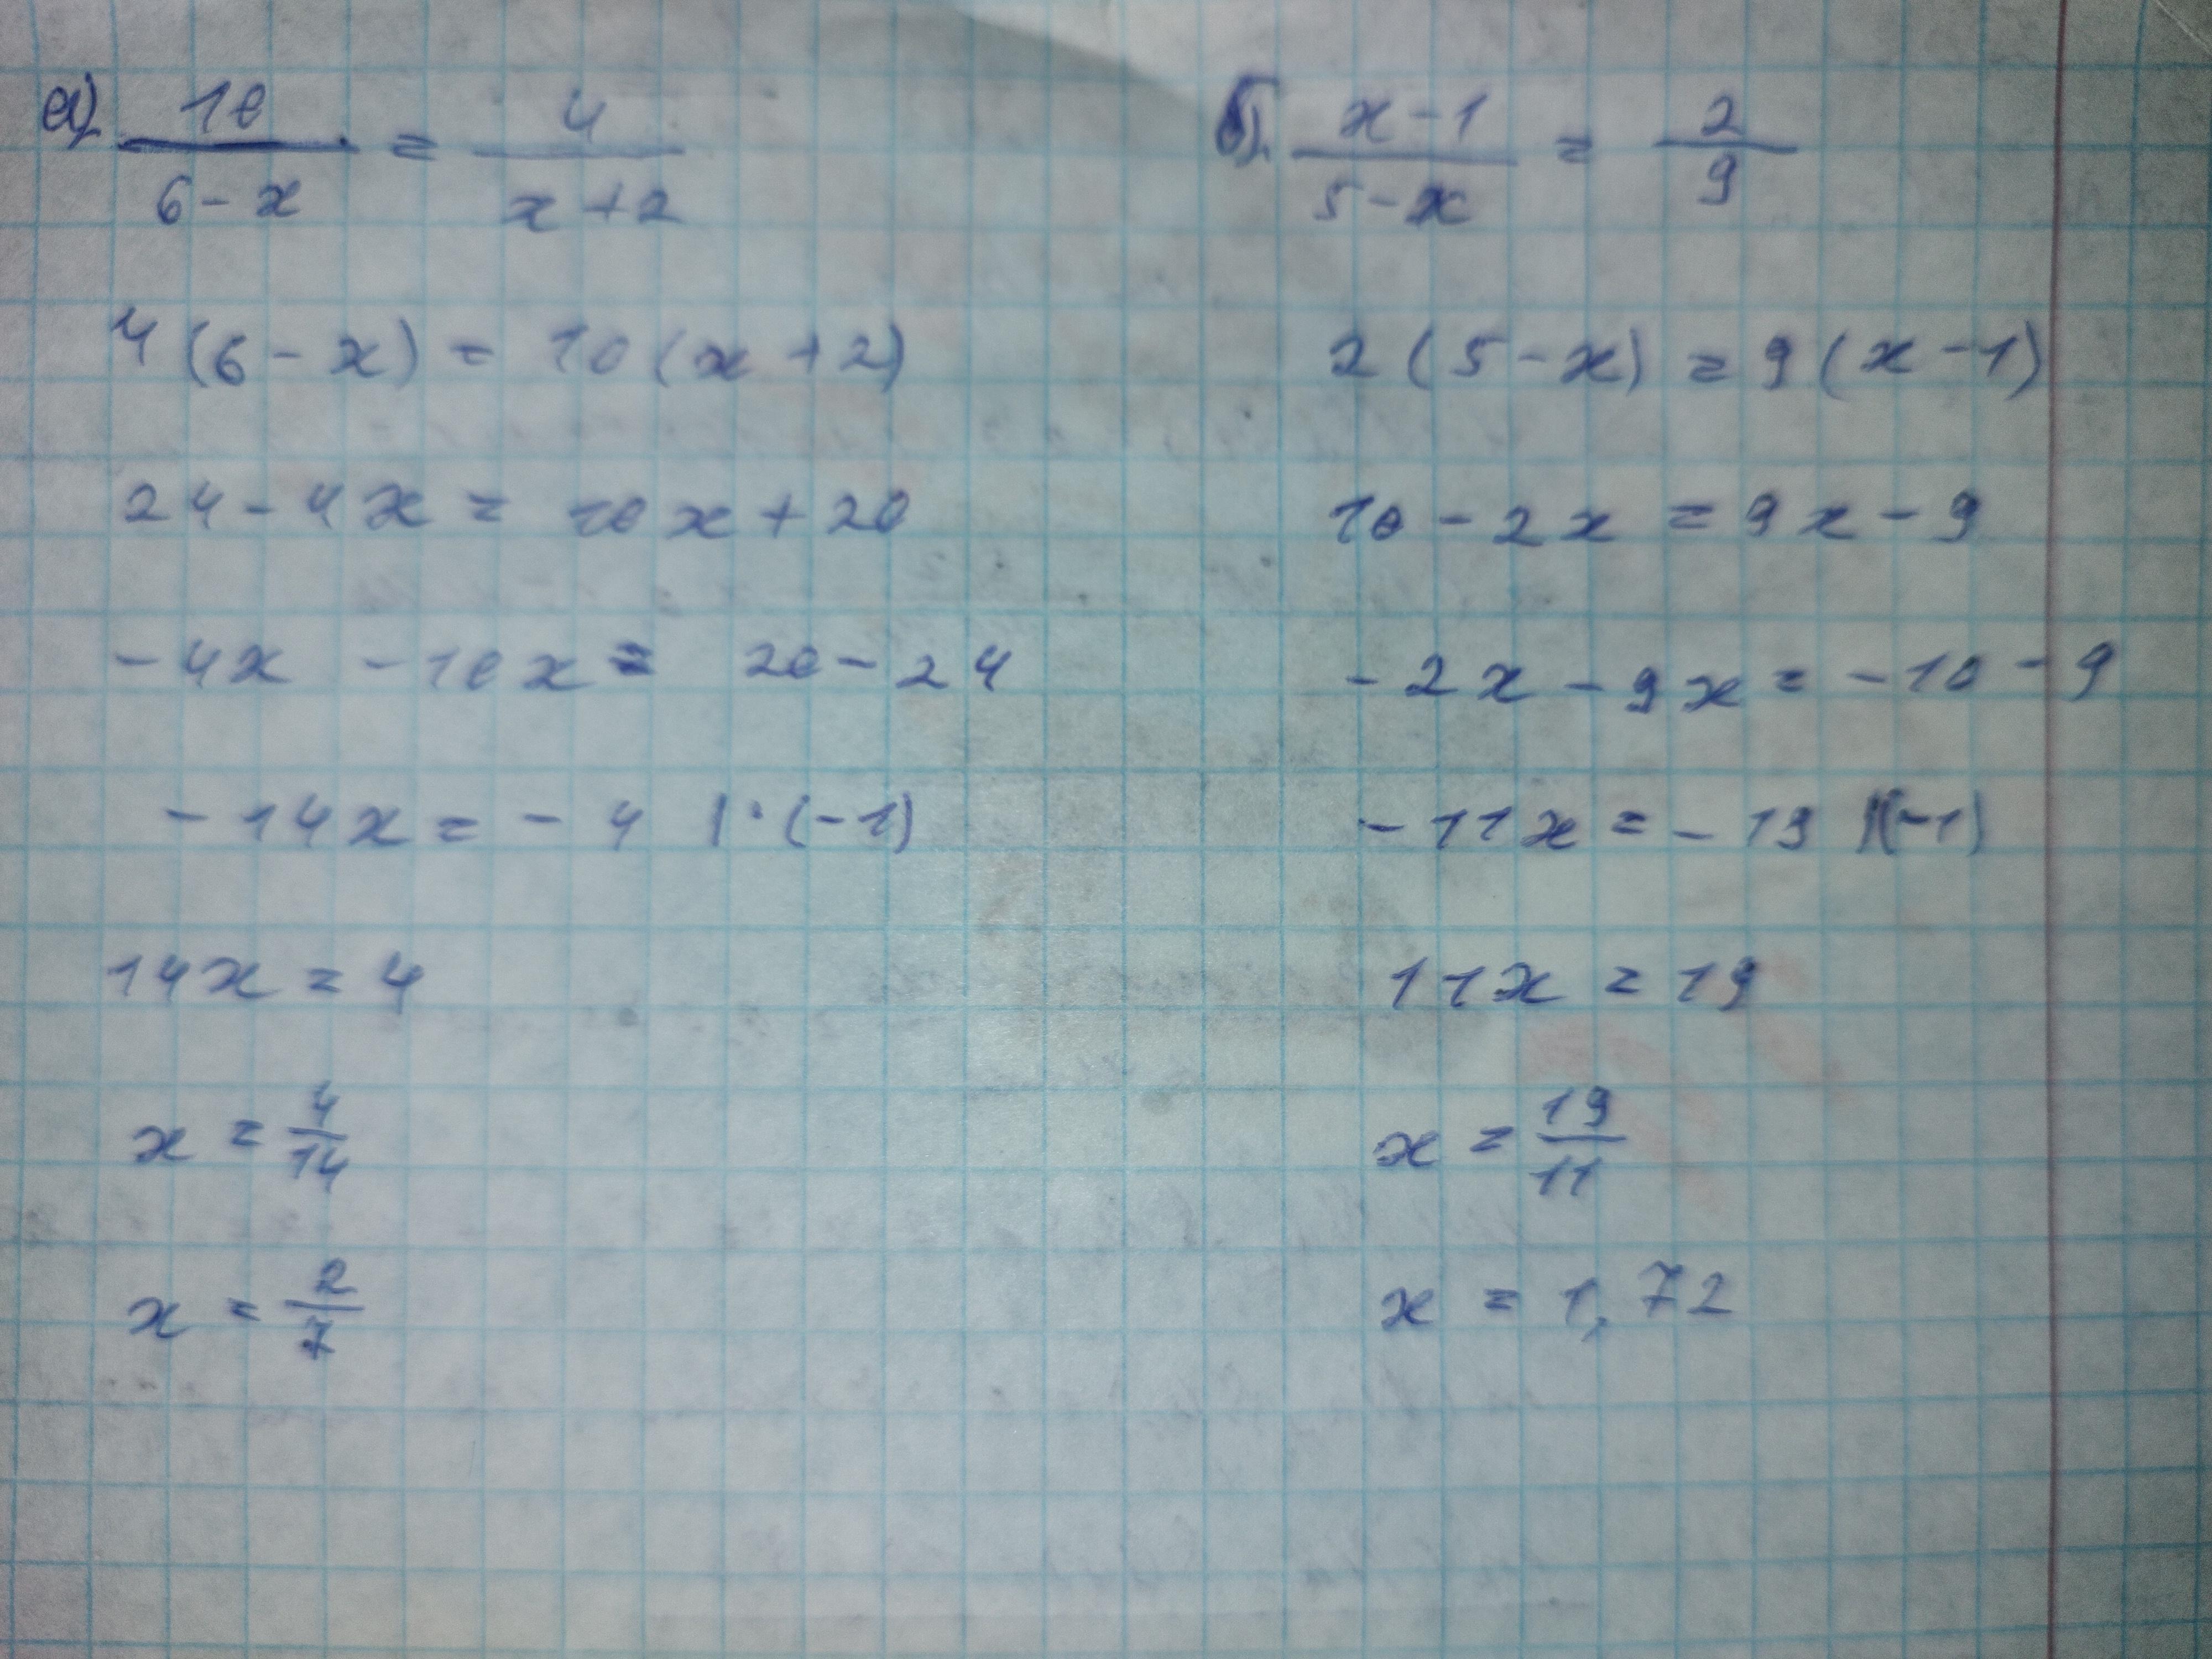 а) 10/(6-x) = 4/(x+2)
4(6-x) = 10(x+2)
24-4x = 10x+20
-4x -10x = 20-24
-14x = -4 |·(-1)
14x = 4
x = 4/14
x = 2/7
б). (x-1)/(5-x) = 2/9
2(5-x) = 9(x-1)
10-2x = 9x-9
-2x-9x = -10-9
-11x = -19 |(-1)
11x = 19
x = 19/11
x = 1,72